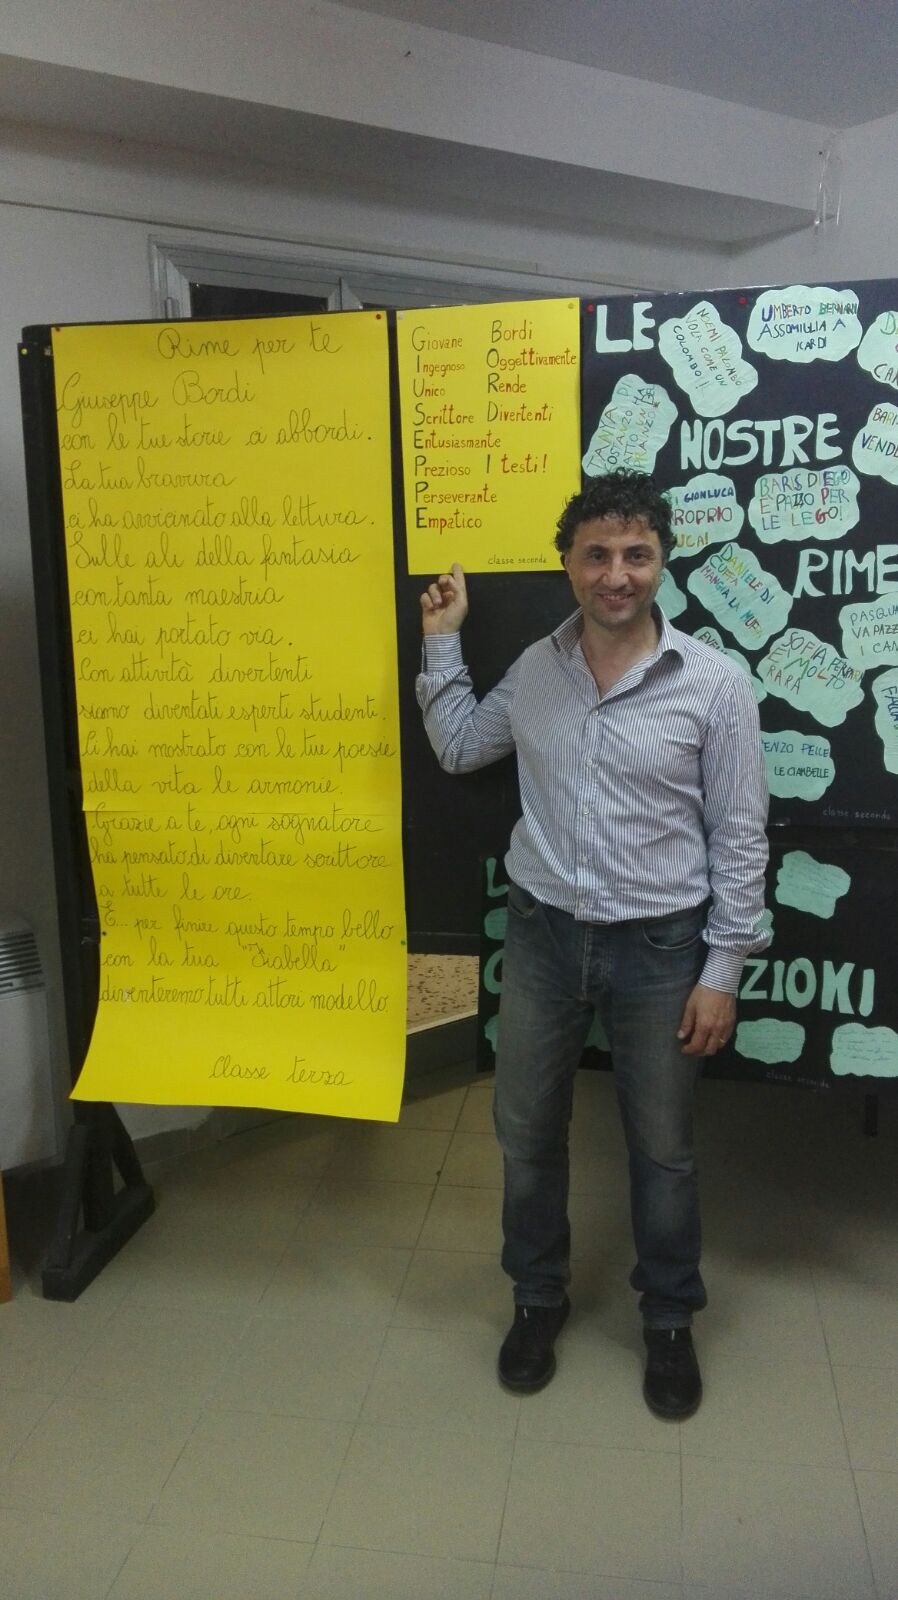 Rime per te
Giuseppe Bordi
con le tue storie ci abbordi.
La tua bravura
ci ha avvicinato alla lettura.
Sulle ali della fantasia
con tanta maestria
ci hai portato via.
Con attività divertenti
siamo diventati esperti studenti.
Ci hai mostrato con le tue poesie
della vita le armonie.
Grazie a te, ogni sognatore
ha pensato di diventare scrittore
a tutte le ore.
E... per finire questo tempo bello
con la tua "Fiabella"
diventeremo tutti attori modello.
Classe terza
Giovane Bordi
Ingegnoso Oggettivamente
Unico Rende
Scrittore Divertenti
Entusiasmante
Prezioso I testi!
Perseverante
Empatico
classe seconda
LE
NOSTRE
RIME
NOEMI PALOMBO
VOLA COME UN
COLOMBO!
UMBERTO BERNARDI
ASSOMIGLIA A
ICARDI
TANIA DI
COSTANZO HA
FATTO UN
PRANZO
GIANLUCA
PROPRIO
BARIS DIEGO
E' PAZZO PER
LE LEGO!
DANIELE DI
CUFFA
MANGIA LA MUFFA
SOFIA FERRARA
E' MOLTO
RARA
PASQUA
VA PAZZ
I CAN
BARI
VENDE
ENZO PELLE
LE CIAMBELLE
classe seconda
ZIONI
classe seconda